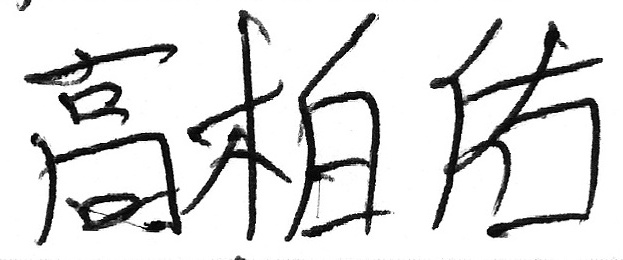 高柏佑